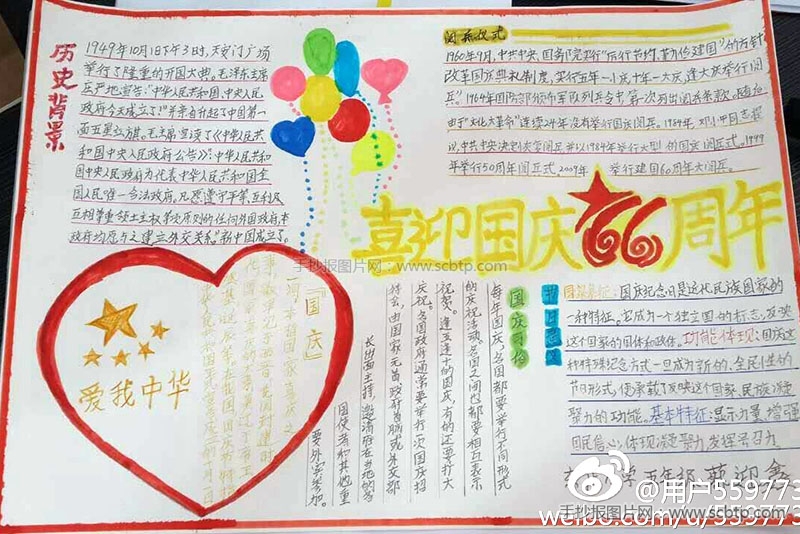 历史背景
1949年10月1日下午3时,天安门广场
举行了隆重的开国大典,毛泽东主席
庄严地宣告:"中华人民共和国,中央人民
政府今天成立了!"并亲自升起了中国第一
面五星红旗。毛主席宣读了《中华人民共
和国中央人民政府公告》:"中华人民共和
国中央人民政府为代表中华人民共和国全
国人民唯一合法政府,凡愿遵守平等、互利及
互相尊重领土主权等项原则的任何外国政府,本
政府均愿与之建立外交关系"新中国成立了。
阅兵仪式
1960年9月,中共中央、国务院实行"厉行节约、勤俭建国"的方针
改革国庆典礼制度,实行五年一小庆十年一大庆,逢大庆举行阅
兵。1964年国防部颁布军队列兵令中,第一次列出阅兵条款,随后
由于"文化大革命"连续24年没有举行国庆阅兵。1984年,邓小平同志提
议,中共中央决定庆恢复阅兵并以1984年举行大型的国庆阅兵式。1999
年举行50周年阅兵式,2009年 举行建国60周年大阅兵。
喜迎国庆66周年
手抄报图片网:www.scbtp.com
爱我中华
『国庆』
国庆习俗
每年国庆,各国都要举行不同形式
的庆祝活动,各国之间也都要相互表示
祝贺。逢五逢十的国庆,有的还要扩大
庆祝。各国政府通常要举行一次国庆招
待会,由国家元首、政府首脑或外交部
长出面主持,邀请驻在当地的各
国使者和其他重
要外宾参加。
节日意义
国家象征:国庆纪念日是近代民族国家的
一种特征。它成为一个独立国的标志,反映
这个国家的国体和政体。功能体现:国庆这
种特殊纪念方式一旦成为新的、全民性的
节日形式,便承载了反映这个国家、民族凝
聚力的功能。基本特征:显示力量、增强
国民信心,体现凝聚力,发挥号召力
五年级 苏迎鑫
@用户559773
weibo.com/u/559773
手抄报图片网:www.scbtp.com